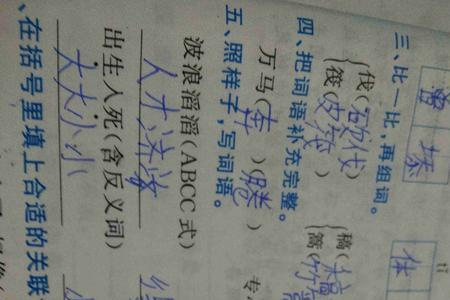 体
三、比一比，再组词。
伐(砍伐) 稿(
筏(皮筏) 篙(竹篙
四、把词语补充完整。
万马(奔)(腾) 专
五、照样子，写词语。
波浪滔滔(ABCC式)
人才济济
出生入死(含反义词)
大大小小
、在括号里填上合适的关联